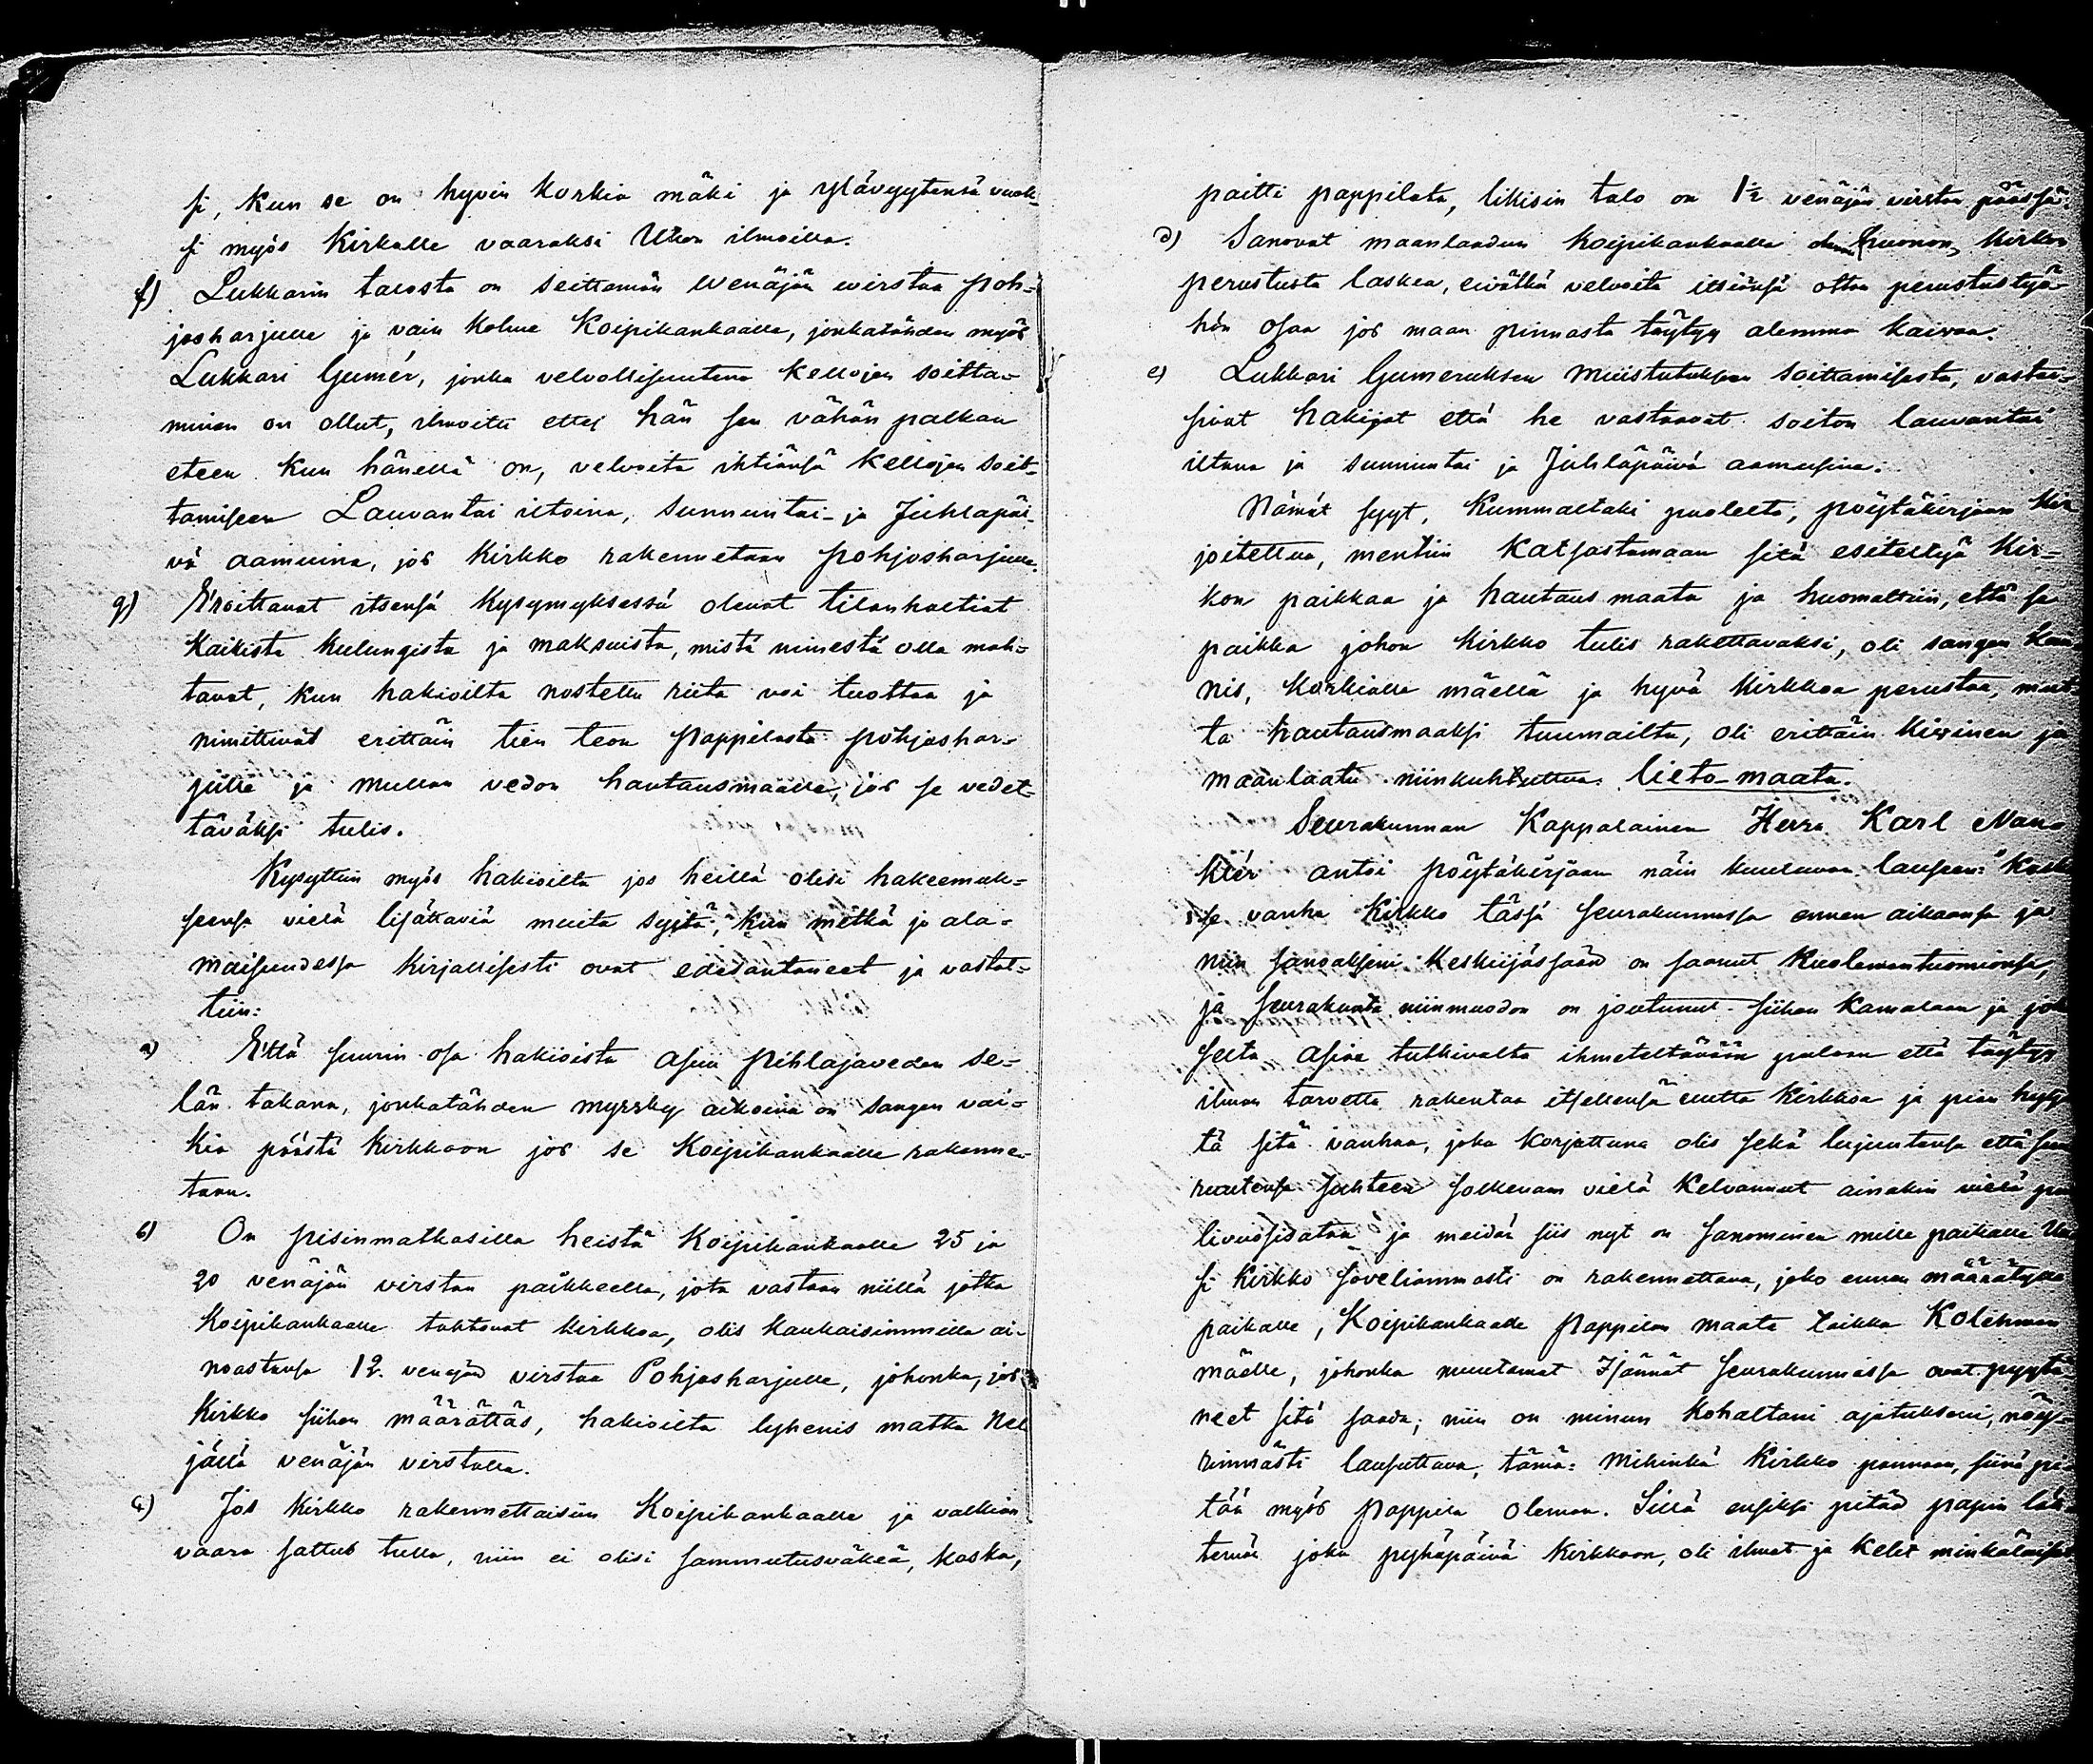 si, kun se on hyvin korkia mäki ja ylävyytensä vuok-
si myös Kirkolle vaaraksi Ukon ilmoilla.
f) Lukkarin talosta on seittemän wenäjän wirstaa poh-
josharjulle ja vain kolme Koipikankaalle, jonkatähden myös
Lukkari Gumér, jonka velvollisuutena kellojen soitta-
minen on ollut, ilmoitti ettei hän sen vähän palkan
eteen kun hänellä on, velvoita ihtiänsä kellojen soit-
tamiseen Lauvantai iltoina, sunnuntai- ja Juhlapäi-
vä aamuina, jos kirkko rakennetaan pohjosharjulle.
g) Eroittavat itsensä kysymyksessä olevat tilanhaltiat
kaikista kulungista ja maksuista, mistä nimestä olla mah-
tavat, kun hakioilta nostettu riita voi tuottaa ja
nimittivät erittäin tien teon pappilasta pohjoshar-
julle ja mullan vedon hautausmaalle, jos se vedet-
täväksi tulis.
Kysyttiin myös hakioilta jos heillä olisi hakeemuk-
seensa vielä lisättäviä muita syitä, kun mitkä jo ala-
maisuudessa kirjallisesti ovat edesantaneet ja vastat-
tiin:
a) Että suurin osa hakioista asuu pihlajaveden se-
län takana, jonkatähden myrsky aikoina on sangen vai-
kia päästä kirkkoon jos se Koipikankaalle rakenne-
taan.
b) On pisinmatkasilla heistä Koipikankaalle 25 ja
20 venäjän virstan paikkeella, jota vastaan niillä jotka
Koipikankaalle tahtovat kirkkoa, olis kaukaisimmilla ai-
noastansa 12 venäjän virstaa Pohjosharjulle, johonka, jos
Kirkko siihen määrättäs, hakioilta lyhenis matka nel
jällä venäjän virstalla.
c) Jos kirkko rakennettaisiin Koipikankaalle ja valkian
vaara sattus tulla, niin ei olisi sammutusväkeä, koska,
paitti pappilata, likisin talo on 1½ venäjän virstan päässä.
d) Sanovat maanlaadun koipikankaalla huonon, kirkon
perustusta laskea, eivätkä velvoita itsiänsä ottaa perustustyö-
hön osaa jos maan pinnasta täytyy alemma kaivaa.
e) Lukkari Gumeruksen muistutuksen soittamisesta, vastai-
sivat hakijat että he vastaavat soiton lauvantai
iltana ja sunnuntai ja Juhlapäivä aamusina.
Nämät syyt, kummaltaki puolelta, pöytäkirjaan kir
joitettua, mentiin katsastamaan sitä esiteltyä kir-
kon paikkaa ja hautausmaata ja huomattiin, että se
paikka johon kirkko tulis rakettavaksi, oli sangen kau-
nis, korkialla mäellä ja hyvä kirkkoa perustaa, mut-
ta hautausmaaksi tuumailtu, oli erittäin kivinen ja
maanlaatu niinkuhtuttua lieto-maata.
Seurakunnan Kappalainen Herra Karl Nan-
klér antoi pöytäkirjaan näin kuuluvan lauseen: "Koska
se vanha Kirkko tässä seurakunnassa ennen aikaansa ja
niin sanoakseni keskiijässään on saanut kuolemantuomionsa,
ja seurakunta niinmuodon on joutunut siihen kamalaan ja jok
selta asiaa tutkivalta ihmeteltävään pulaan että täytyy
ilman tarvetta rakentaa itsellensä uutta kirkkoa ja pian hyljä
tä sitä vanhaa, joka korjattuna olis sekä lujuutensa että suu
ruutensa suhteen solkenaan vielä kelvannut ainakin vielä puo
livuosisataa ja meidän siis nyt on sanominen mille paikalle Uu
si kirkko soveliammasti on rakennettava, joko ennen määrätylle
paikalle, Koipikankaalle pappilan maata taikka Kolehman
mäelle, johonka muutamat Isännät seurakunnassa ovat pyytä-
neet sitä saada; niin on minun kohaltani ajatukseni, nöy-
rimmästi lausuttava, tämä: mihinkä kirkko pannaan, siinä pi-
tää myös pappila oleman. Sillä ensiksi pitää papin läh-
temän joka pyhäpäivä kirkkoon, oli ilmat ja kelit minkälaiset